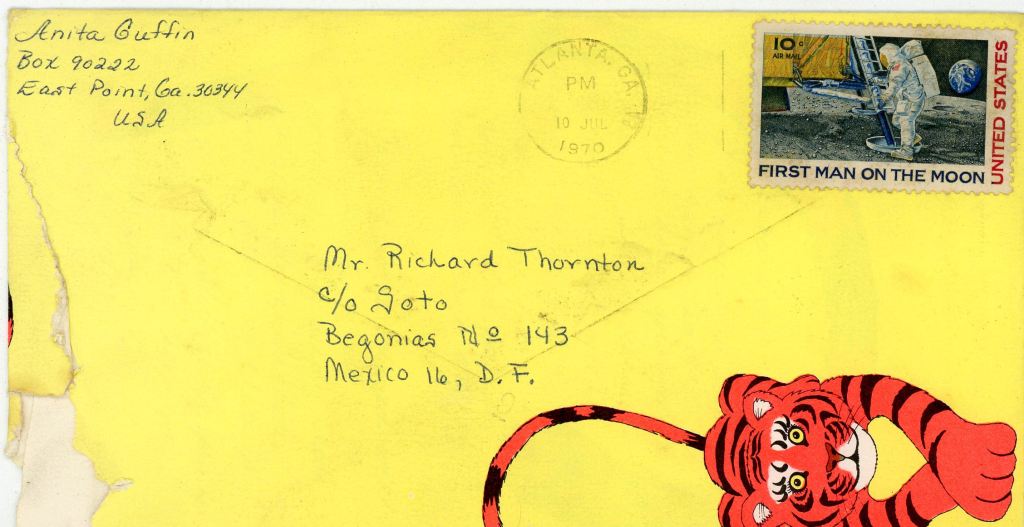 Anita Guffin
Box 90222
East Point, Ga. 30344
USA
ATLANTA, GA
PM
10 JUL
1970
10c
AIR MAIL
UNITED STATES
FIRST MAN ON THE MOON
Mr. Richard Thornton
c/o Soto
Begonias No 143
Mexico 16, D. F.